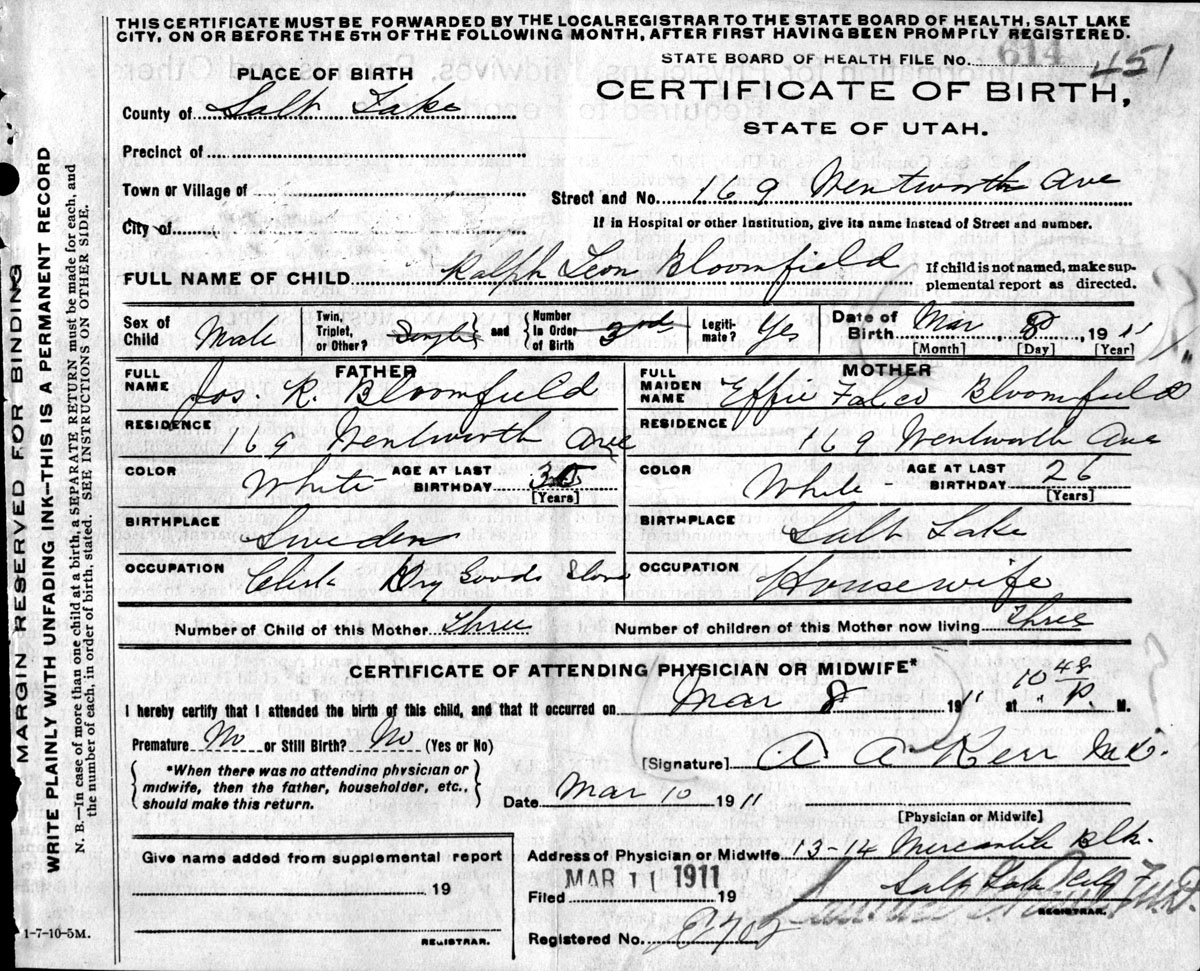 THIS CERTIFICATE MUST BE FORWARDED BY THE LOCAL REGISTRAR TO THE STATE BOARD OF HEALTH, SALT LAKE
CITY, ON OR BEFORE THE 5TH OF THE FOLLOWING MONTH, AFTER FIRST HAVING BEEN PROMPTLY REGISTERED.
STATE BOARD OF HEALTH FILE No. 614 451
PLACE OF BIRTH
CERTIFICATE OF BIRTH,
STATE OF UTAH.
County of Salt Lake
Precinct of
Town or Village of
Street and No. 169 Wentworth Ave
City of
If in Hospital or other Institution, give its name instead of Street and number.
FULL NAME OF CHILD Ralph Leon Bloomfield
If child is not named, make sup-
plemental report as directed.
Sex of Child Male
Twin, Triplet, or Other? Single and Number in Order of Birth 3rd
Legiti-mate? Yes
Date of Birth Mar 8, 1911
[Month] [Day] [Year]
FATHER
FULL NAME Jos. R. Bloomfield
RESIDENCE 169 Wentworth Ave
COLOR White AGE AT LAST BIRTHDAY
[Years]
BIRTHPLACE Sweden
OCCUPATION Clerk Dry Goods Store
MOTHER
FULL MAIDEN NAME Effie Falco Bloomfield
RESIDENCE 169 Wentworth Ave
COLOR White AGE AT LAST BIRTHDAY 26
[Years]
BIRTHPLACE Salt Lake
OCCUPATION Housewife
Number of Child of this Mother Three
Number of children of this Mother now living Three
CERTIFICATE OF ATTENDING PHYSICIAN OR MIDWIFE*
I hereby certify that I attended the birth of this child, and that it occurred on Mar 8 1911 at 10 48 P. M.
Premature No or Still Birth? No (Yes or No)
*When there was no attending physician or
midwife, then the father, householder, etc.,
should make this return.
[Signature] A A Kerr M.D.
Date Mar 10 1911
[Physician or Midwife]
Give name added from supplemental report
19
REGISTRAR.
Address of Physician or Midwife 13-14 Mercantile Blk.
Salt Lake City
Filed MAR 11 1911 19
M.D.
REGISTRAR.
Registered No.
1-7-10-5M.
MARGIN RESERVED FOR BINDING
WRITE PLAINLY WITH UNFADING INK—THIS IS A PERMANENT RECORD
N. B.—In case of more than one child at a birth, a SEPARATE RETURN must be made for each, and
the number of each, in order of birth, stated. SEE INSTRUCTIONS ON OTHER SIDE.